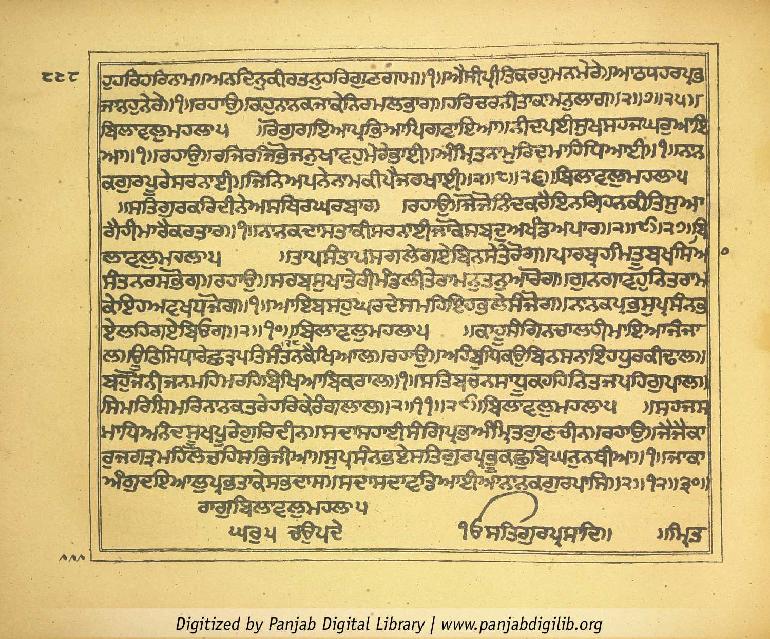 ਹੁਹਰਿਹਰਿਨਾਮਾ॥ਅਨਦਿਨੁਕੀਰਤਨੁਹਰਿਗੁਣਗਾਮਾ॥੧॥ਐਸੀਪ੍ਰੀਤਿਕਰਹੁਮਨਮੇਰੇ॥ਆਠਪਹਰਪ੍ਰਭ
ਜਾਨਹੁਨੇਰੇ॥੧॥ਰਹਾਉ॥ਕਹੁਨਾਨਕਜਾਕੇਨਿਰਮਲਭਾਗ॥ਹਰਿਚਰਨੀਤਾਕਾਮਨੁਲਾਗ॥੨॥੭॥੨੫॥
ਬਿਲਾਵਲੁਮਹਲਾ੫ ॥ਰੋਗੁਗਇਆਪ੍ਰਭਿਆਪਿਗਵਾਇਆ॥ਨੀਦਪਈਸੁਖਸਹਜਘਰੁਆਇ
ਆ॥੧॥ਰਹਾਉ॥ਰਜਿਰਜਿਭੋਜਨੁਖਾਵਹੁਮੇਰੇਭਾਈ॥ਅੰਮ੍ਰਿਤਨਾਮੁਰਿਦਮਾਹਿਧਿਆਈ॥੧॥ਨਾਨ
ਕਗੁਰਪੂਰੇਸਰਨਾਈ॥ਜਿਨਿਅਪਨੇਨਾਮਕੀਪੈਜਰਖਾਈ॥੨॥੮॥੨੬॥ਬਿਲਾਵਲੁਮਹਲਾ੫
॥ਸਤਿਗੁਰਕਰਿਦੀਨੇਅਸਥਿਰਘਰਬਾਰ॥ ਰਹਾਉ॥ਜੋਜੋਨਿੰਦਕਰੈਇਨਗ੍ਰਿਹਨਕੀਤਿਸੁਆ
ਗੈਹੀਮਾਰੈਕਰਤਾਰ॥੧॥ਨਾਨਕਦਾਸਤਾਕੀਸਰਨਾਈਜਾਕੋਸਬਦੁਅਖੰਡਅਪਾਰ॥੨॥੯॥੨੭॥ਬਿ
ਲਾਵਲੁਮਹਲਾ੫ ॥ਤਾਪਸੰਤਾਪਸਗਲੇਗਏਬਿਨਸੇਤੇਰੋਗ॥ਪਾਰਬ੍ਰਹਮਿਤੂਬਖਸਿਆ
ਸੰਤਨਰਸਭੋਗ॥ਰਹਾਉ॥ਸਰਬਸੁਖਾਤੇਰੀਮੰਡਲੀਤੇਰਾਮਨੁਤਨੁਆਰੋਗ॥ਗੁਨਗਾਵਹੁਨਿਤਰਾਮ
ਕੇਇਹਅਵਖਦਜੋਗ॥੧॥ਆਇਬਸਹੁਘਰਦੇਸਮਹਿਇਹਭਲੇਸੰਜੋਗ॥ਨਾਨਕਪ੍ਰਭਸੁਪ੍ਰਸੰਨਭ
ਏਲਹਿਗਏਬਿਓਗ॥੨॥੧੦॥ਬਿਲਾਵਲੁਮਹਲਾ੫ ॥ਕਾਹੂਸੰਗਿਨਚਾਲਹੀਮਾਇਆਜੰਜਾ
ਲ॥ਊਠਿਸਿਧਾਰੇਛਤ੍ਰਪਤਿਸੰਤਨਕੈਖਿਆਲ॥ਰਹਾਉ॥ਅਹੰਬੁਧਿਕਉਬਿਨਸਨਾਇਹਧੁਰਕੀਢਾਲ॥
ਬਹੁਜੋਨੀਜਨਮਹਿਮਰਹਿਬਿਖਿਆਬਿਕਰਾਲ॥੧॥ਸਤਿਬਚਨਸਾਧੂਕਹਹਿਨਿਤਜਪਹਿਗੁਪਾਲ॥
ਸਿਮਰਿਸਿਮਰਿਨਾਨਕਤਰੇਹਰਿਕੇਰੰਗਲਾਲ॥੨॥੧੧॥੨੯॥ਬਿਲਾਵਲੁਮਹਲਾ੫ ॥ਸਹਜਸ
ਮਾਧਿਅਨੰਦਸੂਖਪੂਰੇਗੁਰਿਦੀਨ॥ਸਦਾਸਹਾਈਸੰਗਿਪ੍ਰਭਅੰਮ੍ਰਿਤਗੁਣਚੀਨ॥ਰਹਾਉ॥ਜੈਜੈਕਾ
ਰੁਜਗਤ੍ਰਮਹਿਲੋਚਹਿਸਭਿਜੀਆ॥ਸੁਪ੍ਰਸੰਨਭਏਸਤਿਗੁਰਪ੍ਰਭੂਕਛੁਬਿਘਨੁਨਥੀਆ॥੧॥ਜਾਕਾ
ਅੰਗੁਦਇਆਲਪ੍ਰਭਤਾਕੇਸਭਦਾਸ॥ਸਦਾਸਦਾਵਡਿਆਈਆਨਾਨਕਗੁਰਪਾਸਿ॥੨॥੧੨॥੩੦॥
ਰਾਗੁਬਿਲਾਵਲੁਮਹਲਾ੫
ਘਰੁ੫ ਚਉਪਦੇ ੴਸਤਿਗੁਰਪ੍ਰਸਾਦਿ॥ ॥ਮ੍ਰਿਤ
Digitized by Panjab Digital Library | www.panjabdigilib.org